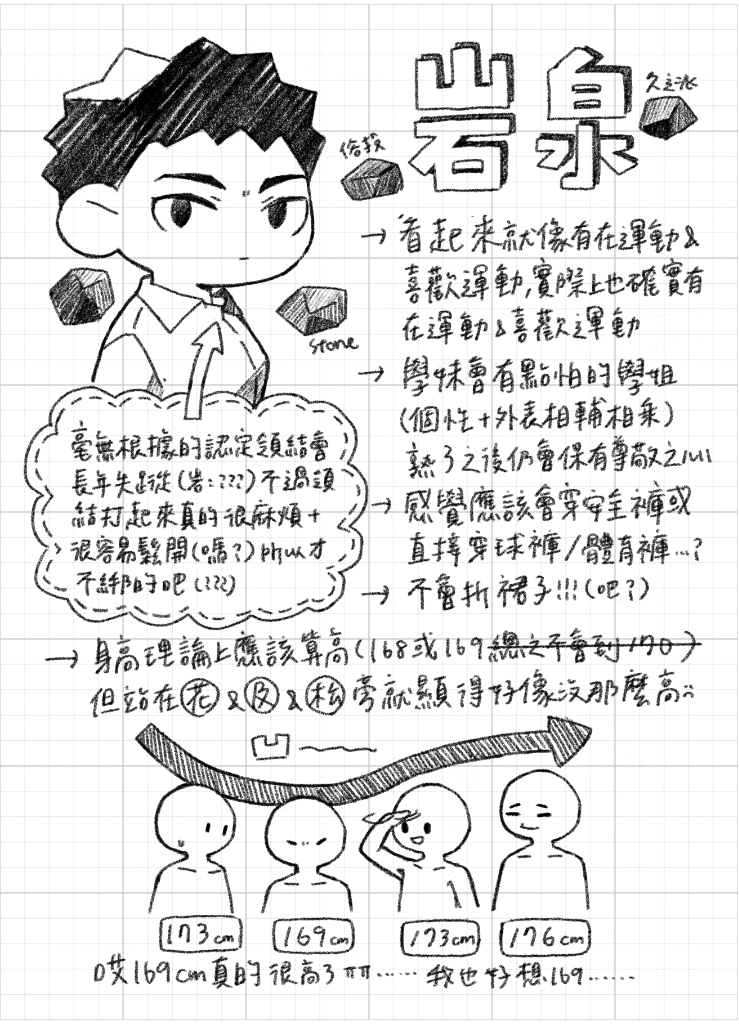 岩泉
久之派
俗投
stone
→ 看起來就像有在運動&
喜歡運動,實際上也確實有
在運動&喜歡運動
→ 學妹會有點怕的學姐
(個性+外表相輔相乘)
熟了之後仍會保有尊敬之心
→ 感覺應該會穿安全褲或
直接穿球褲/體育褲...?
→ 不會折裙子!!!(吧?)
毫無根據的認定領結會
長年失蹤(岩:???)不過領
結打起來真的很麻煩+
很容易鬆開(嗎?)所以才
不綁的吧(???)
→ 身高理論上應該算高(168或169總之不會到170)
但站在花&及&松旁就顯得好像沒那麼高
凹
173cm
169cm
173cm
176cm
哎169cm真的很高了ㅠㅠ…… 我也好想169……